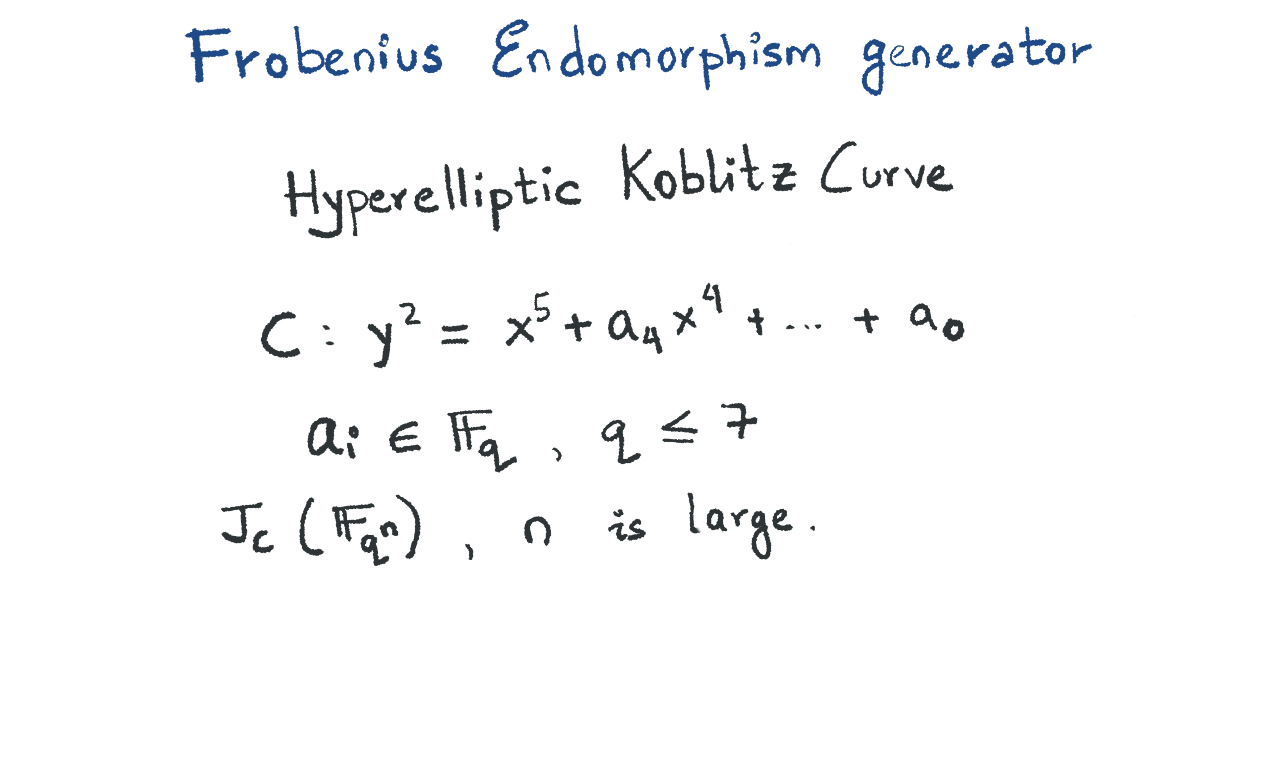 Frobenius Endomorphism generator
Hyperelliptic Koblitz Curve
C : y² = x⁵ + a₄x⁴ + ... + a₀
aᵢ ∈ 𝔽_q , q ≤ 7
J_C (𝔽_qⁿ) , n is large.